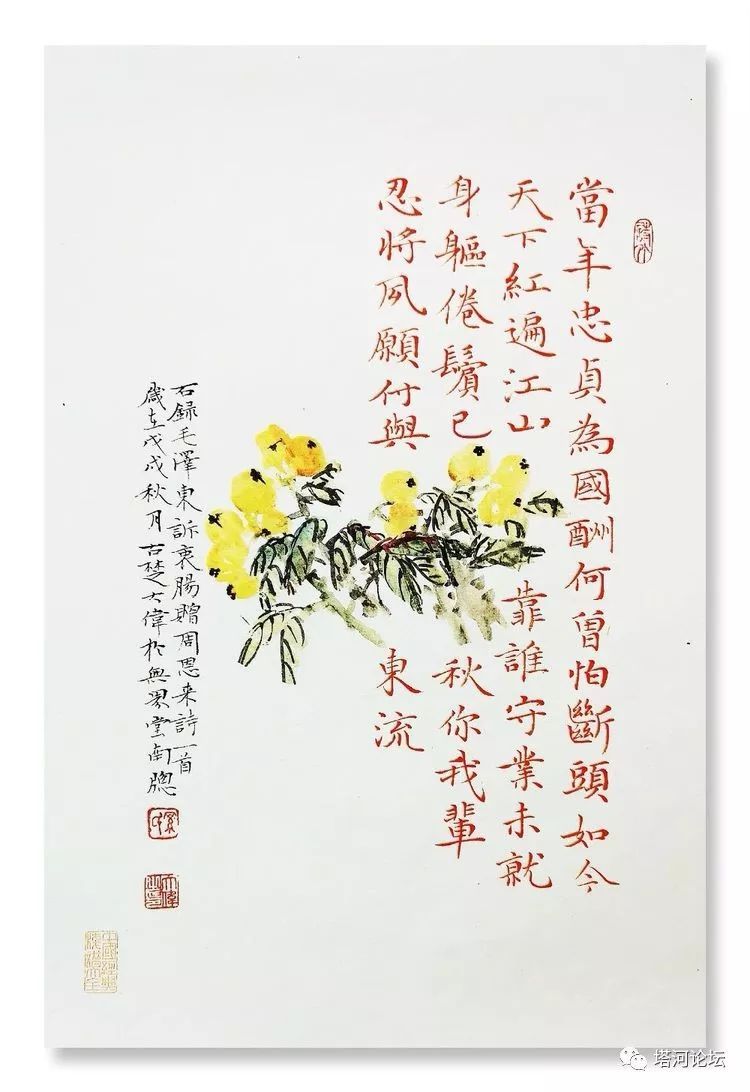 當年忠貞為國酬何曾怕斷頭如今
天下紅遍江山靠誰守業未就
身軀倦鬢已秋你我輩
忍將夙願付與東流
右錄毛澤東訴衷腸贈周恩来詩一首
歲在戊戌秋月古楚大偉於無界堂南牕
塔河论坛